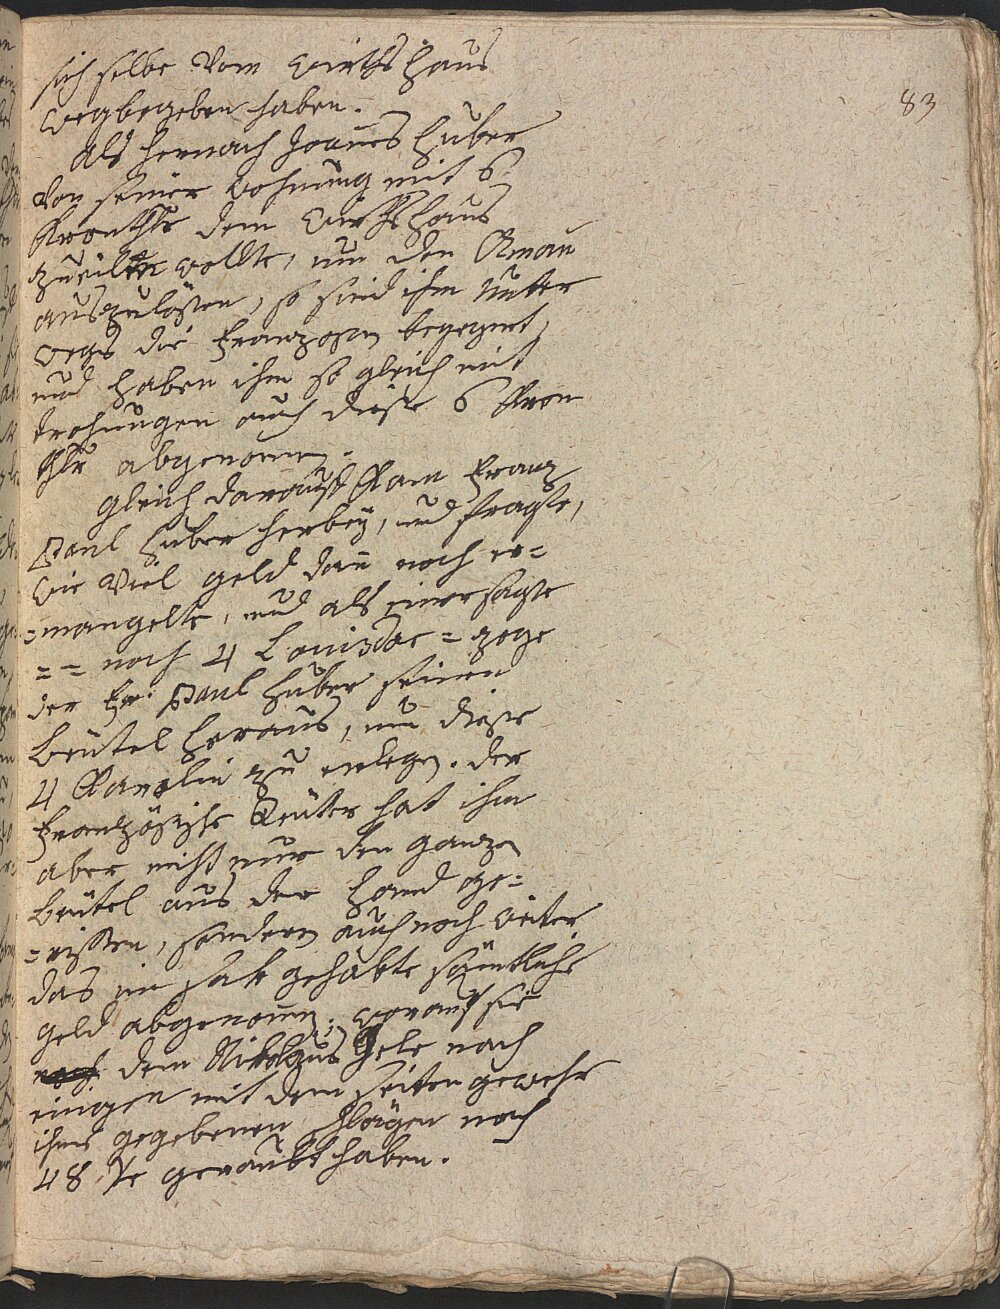 83
sich selbe vom wirthshaus
wegbegeben haben.
Als hernach Joanes Huber
von seiner wohnung mit 6
Kronthlr dem wirthshaus
zueilen wollte, um den Aman
auszulösen, so sind ihm unter
wegs die Franzosen begegnet,
und haben ihm so gleich mit
trohungen auch diese 6 Kron
thlr abgenomen.
gleich darauf kam Franz
Paul Huber herbey, und fragte,
wie viel geld dan noch er=
=mangelte, und als einer sagte
= = noch 4 Louisdor = zoge
der Fr: Paul Huber seinen
beutel heraus, um diese
4 Karolin zu erlegen. der
Französische Reuter hat ihm
aber nicht nur den ganzen
beutel aus der Hand ge=
=rissen, sondern auch noch weiter
das im sack gehabte sämtliche
geld abgenomen; worauf sie
dem Nikolaus Hele nach
einigen mit dem seiten gewehr
ihme gegebenen schlägen noch
48 xr geraubt haben.